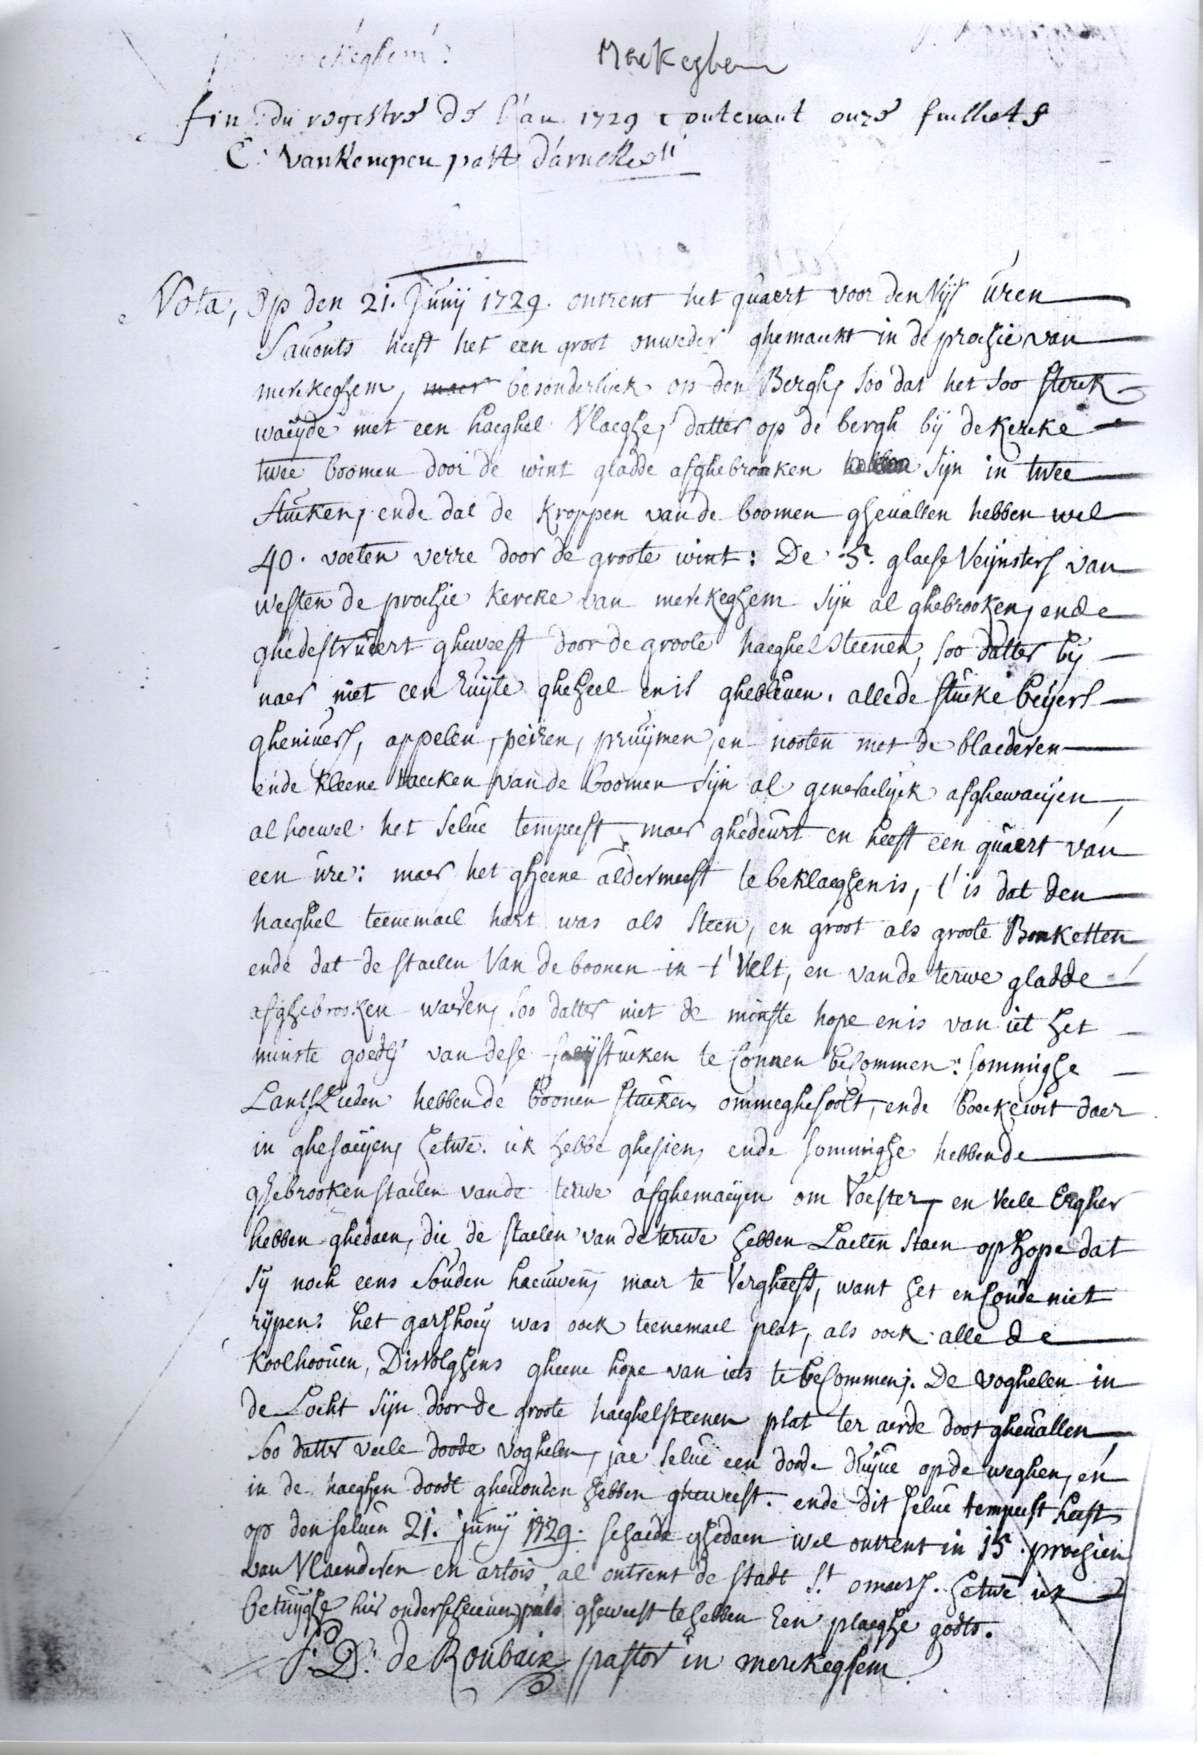 Merkeghem
fin du registre de l'an 1729 contenant onze fuillets
C: Vankempen past d'arnicke
Nota, Op den 21. Junij 1729. ontrent het quaert voor den Vijf üren
Sauonts heeft het een groot onweder ghemaeckt in de prochie van
merckeghem, maer besonderlick op den Bergh, soo dat het soo sterck
waeyde met een haeghel Vlaeghe, datter op de bergh bij de kercke
twee boomen door de wint gladde afghebrooken hebben sijn in twee
stucken, ende dat de kroppen van de boomen gheuallen hebben wel
40. voeten verre door de groote wint: De 5. glaese Veijnsters van
westen de prochie kercke van merckeghem sijn al ghebrooken, ende
ghedestrueert gheweest door de groote haeghel steenen, soo datter bij
naer niet een Ruijte gheheel en is ghebleuen. alle de stucke beijers
gheniuers, appelen, peiren, pruijmen, en nooten met de blaederen
ende kleene tacken van de boomen sijn al generaelijck afghewaeijen,
al hoewel het selue tempeest maer ghedeurt en heeft een quaert van
een üre: maer het gheene aldermeest te beklaeghen is, t'is dat den
haeghel teenemael hart was als steen, en groot als groote Bonketten
ende dat de staelen Van de boonen in t'Velt, en van de terwe gladde
afghebrooken waeren, soo datter niet de minste hope en is van iet het
minste goedts van dese stucken te connen becommen: sommighe
Lantslieden hebben de boonen stucken ommeghesoolt, ende boeckewit daer
in ghesaeijen, hetwe. ick hebbe ghesien, ende sommighe hebben de
ghebrooken staelen van de terwe afghemaeijen om Voester, en Veele Ergher
hebben ghedaen, die de staelen van de terwe hebben Laeten staen op hope dat
sij noch eens souden haeuwen, maer te Vergheefs, want het en conde niet
rijpen: het garshoeij was oock teenemael plat, als oock alle de
koolhoouen, Disvolghens gheene hope van iets te becommen. De voghelen in
de Locht sijn door de groote haeghelsteenen plat ter aerde doot gheuallen
soo datter veele doode voghelen, jae selue een doode duijue op de weghen, en
in de haeghen doodt gheuonden hebben gheweest. ende dit selue tempeest heeft
op den seluen 21. junij 1729. schaede ghedaen wel ontrent in 15 prochien
van Vlaenderen en artois al ontrent de stadt St. omaers. hetwe ick
betuijghe hier onderschreuen gheweest te hebben Een plaeghe godts.
J: D: de Roubaix pastor in merckeghem